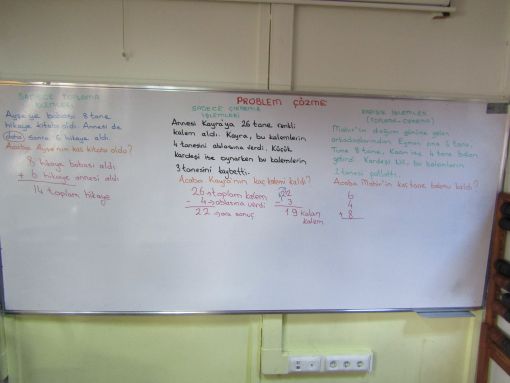 PROBLEM ÇÖZME
SADECE TOPLAMA
İŞLEMLERİ
Ayşe'ye babası 8 tane
hikaye kitabı aldı. Annesi de
daha sonra 6 hikaye aldı.
Acaba Ayşe'nin kaç kitabı oldu?
8 hikaye babası aldı
+ 6 hikaye annesi aldı
14 toplam hikaye
SADECE ÇIKARMA
İŞLEMLERİ
Annesi Kayra'ya 26 tane renkli
kalem aldı. Kayra, bu kalemlerin
4 tanesini ablasına verdi. Küçük
kardeşi ise oynarken bu kalemlerin
3 tanesini kaybetti.
Acaba Kayra'nın kaç kalemi kaldı?
26 → toplam kalem
- 4 → ablasına verdi
22 → ara sonuç
22
- 3
19 kalan
kalem
KARIŞIK İŞLEMLER
(TOPLAMA-ÇIKARMA)
Mahir'in doğum gününe gelen
arkadaşlarından, 6 tane,
8 tane, 4 tane balon
getirdi. Kardeşi bu balonların
2 tanesi patlattı.
Acaba Mahir'in kaç tane balonu kaldı?
6
4
+ 8